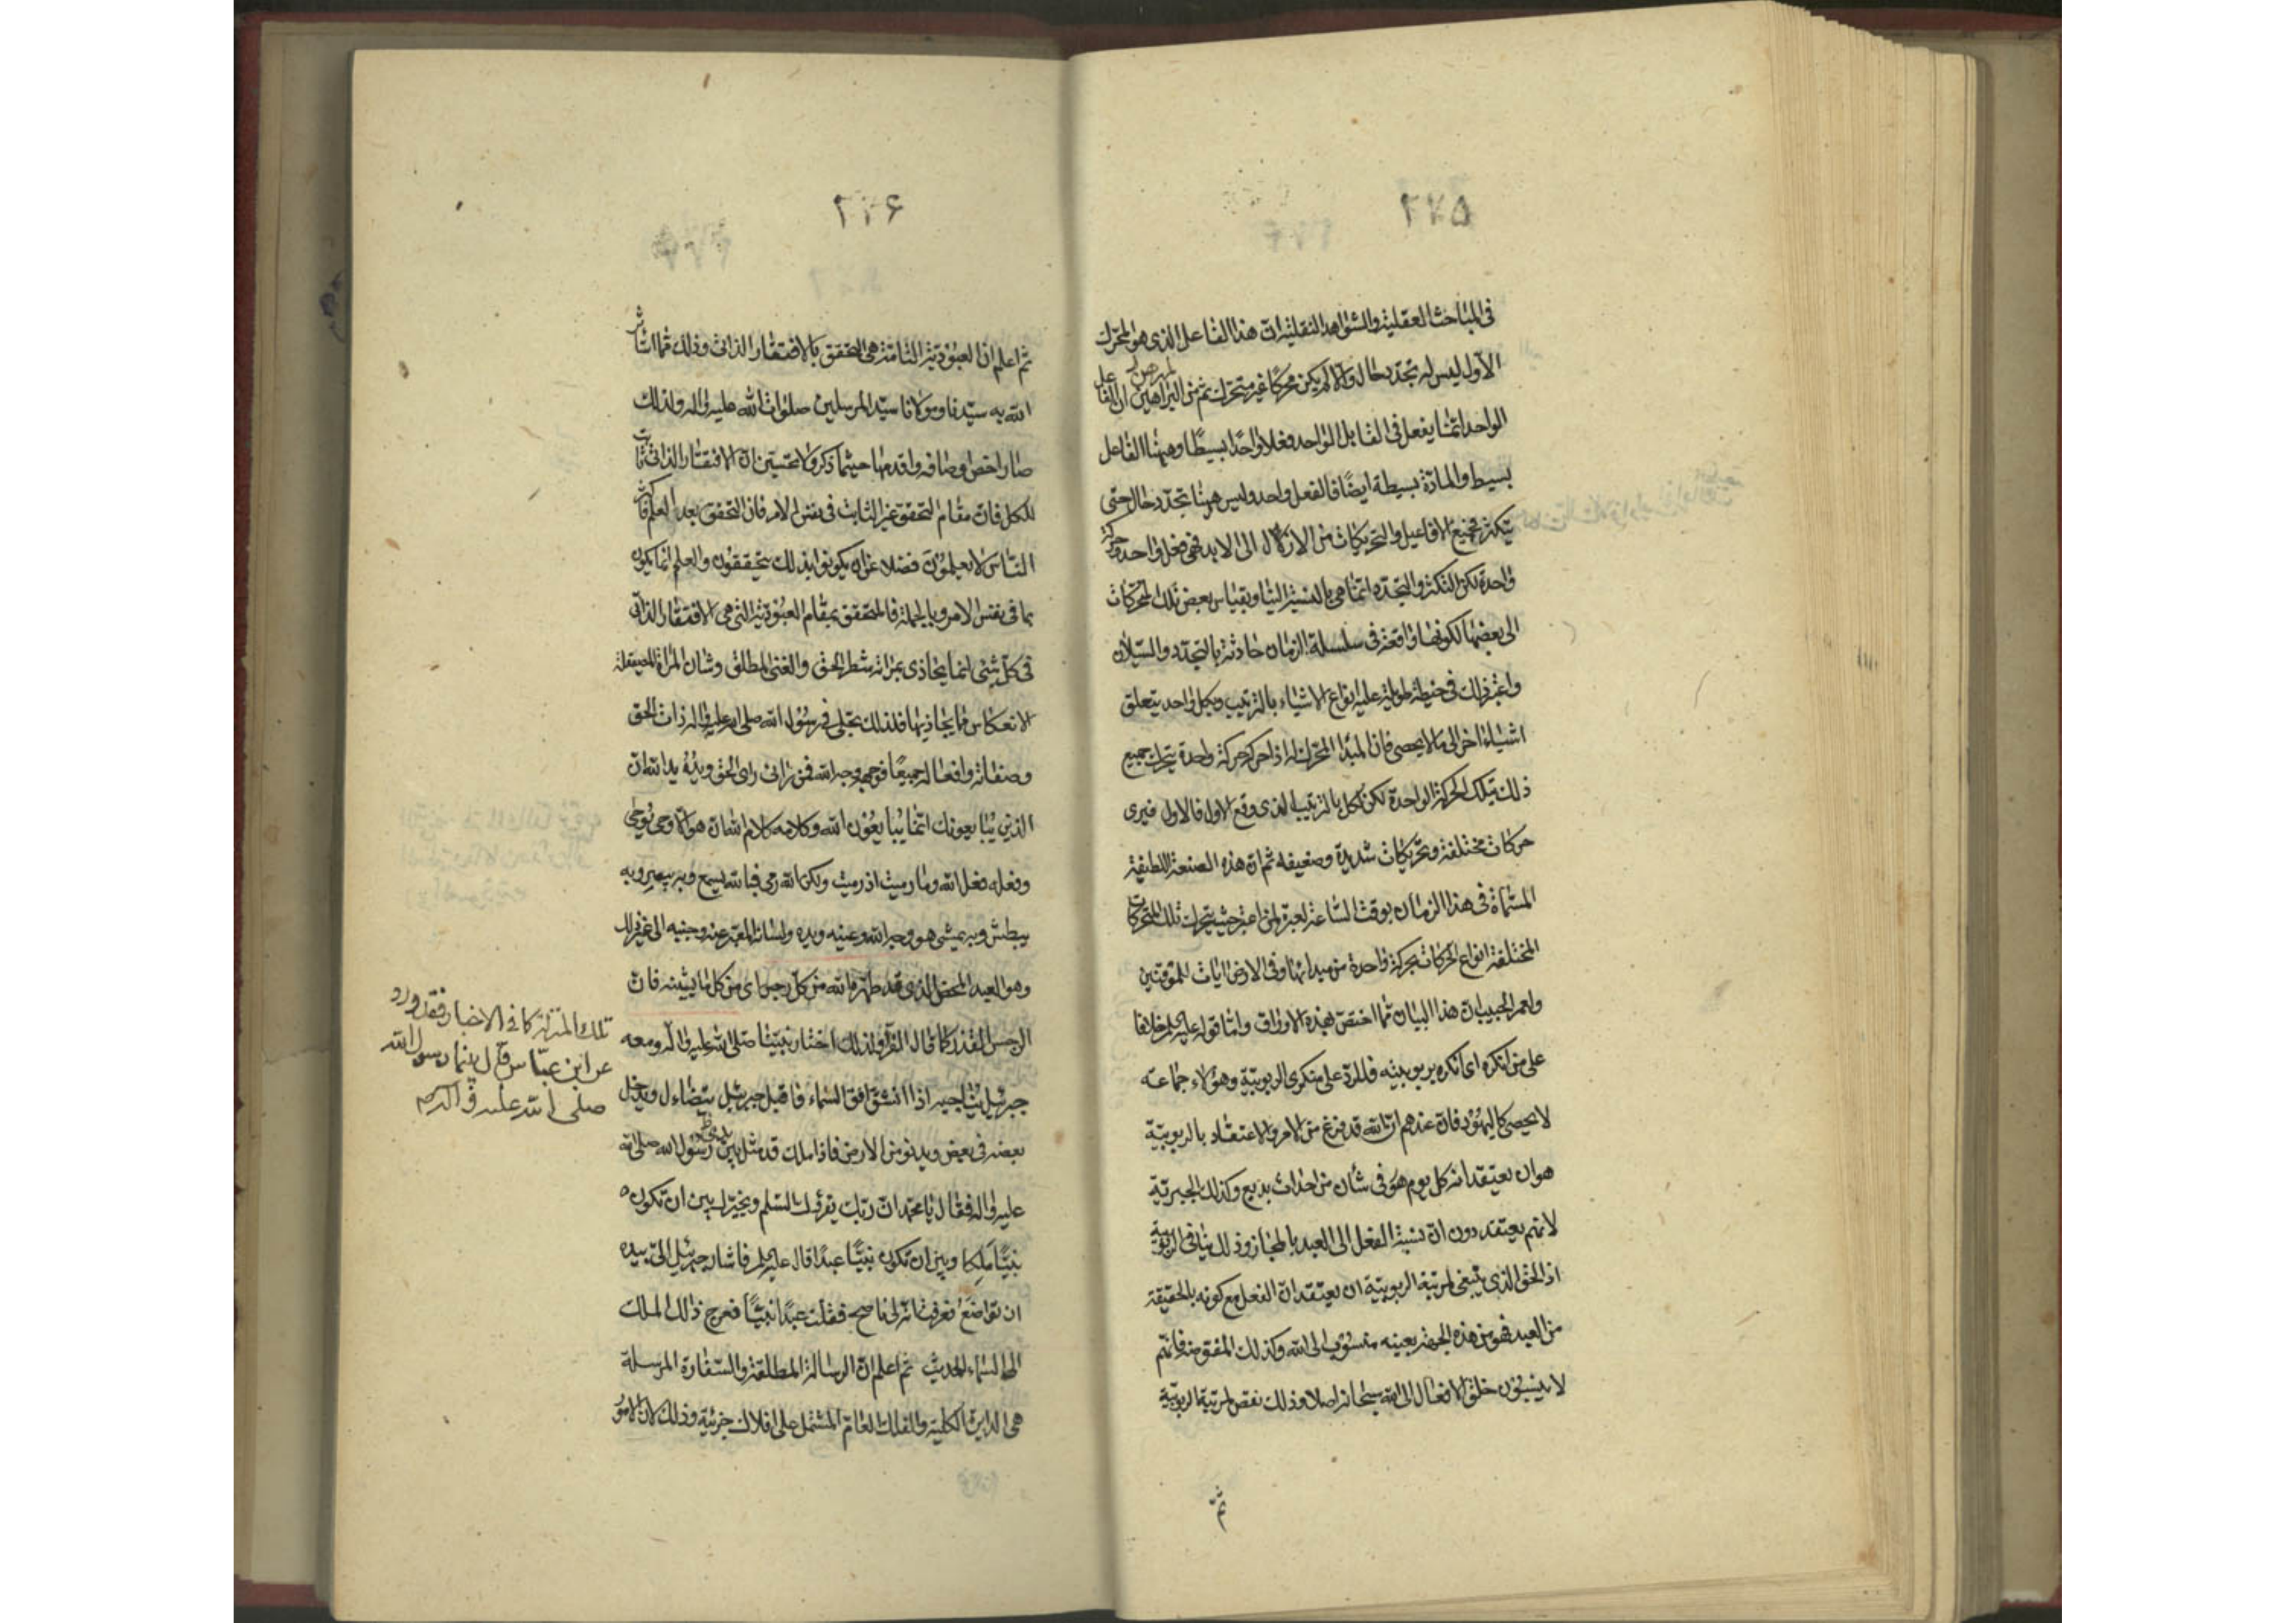 ٢٧۵
فى المباحث العقلية والشواهد النقلية ان هذا الفاعل الذى هو المحرك
الاول ليس له تجدد حال والا لم يكن محركا غير متحرك ثم من البراهين ان الفاعل
الواحد انما يفعل فى القابل الواحد فعلا واحدا بسيطا وههنا الفاعل
بسيط والمادة بسيطة ايضا فالفعل واحد وليس ههنا تجدد حال حتى
يتكثر فجميع الافاعيل والتحريكات من الازل الى الابد فهى فعل واحد وحركة
واحدة لكن التكثر والتجدد انما هى بالنسبة الينا وبقياس بعض تلك المتحركات
الى بعضها لكونها واقعة فى سلسلة الزمان حادثة بالتجدد والسيلان
واعتبر ذلك فى خيط طويلة عليه انواع الاشياء بالترتيب وبكل واحد يتعلق
اشياء اخر الى ما لا يحصى فان المبدا المحرك له اذا حركه حركة واحدة يتحرك جميع
ذلك بتلك الحركة الواحدة لكن لكل بالترتيب الذى وقع الاول فالاول فيرى
حركات مختلفة وتحريكات شديدة وضعيفه ثم ان هذه الصنعة اللطيفة
المسماة فى هذا الزمان بوقت الساعة لعبرة لمن اعتبر حيث يتحرك تلك المتحركات
المختلفة انواع الحركات بحركة واحدة من مبدائها وفى الارض ايات للموقنين
ولعمر الحبيب ان هذا البيان مما اختص بهذه الاوراق واما قوله عليه السلم خلافا
على من انكره اى انكره بربوبيته فللرد على منكرى الربوبية وهؤلاء جماعة
لا يحصى كاليهود فان عندهم ان الله قد فرغ من الامر والاعتقاد بالربوبية
هو ان يعتقد انه كل يوم هو فى شأن من احداث بديع وكذلك الجبرية
لانهم يعتقدون ان نسبة الفعل الى العبد بالمجاز وذلك ينافى الربوبية
اذ الحق الذى ينبغى لمرتبة الربوبية ان يعتقد ان الفعل مع كونه بالحقيقة
من العبد فهو من هذه الجهة بعينه منسوب الى الله وكذلك المفوضة فانهم
لا ينسبون خلق الافعال الى الله سبحانه اصلا وذلك نقص لمرتبة الربوبية
ثم
٢٧۶
ثم اعلم ان العبودية التامة هى التحقق بالافتقار الذاتى وذلك مما استأثر
الله به سيدنا ومولانا سيد المرسلين صلوات الله عليه واله ولذلك
صار اخص اوصافه واقدمها حيثما ذكر ولا تحسبن ان الافتقار الذاتى ثابت
للكل فان مقام التحقق غير الثابت فى نفس الامر فان التحقق بعد العلم واكثر
الناس لا يعلمون فضلا عن ان يكونوا بذلك يتحققون والعلم انما يكون
بما فى نفس الامر وبالجملة فالمتحقق بمقام العبودية التى هى الافتقار الذاتى
فى كل شئ انما يحاذى بمراته شطر الحق والغنى المطلق وشان المراة الصيقلة
الانعكاس مما يحاذيها فلذلك تجلى فى رسول الله صلى الله عليه واله ذات الحق
وصفاته وافعاله جميعا فوجهه وجه الله فمن رانى راى الحق ويده يد الله ان
الذين يبايعونك انما يبايعون الله وكلامه كلام الله ان هو الا وحى يوحى
وفعله فعل الله وما رميت اذ رميت ولكن الله رمى فبالله يسمع وبه يبصر وبه
يبطش وبه يمشى هو وجه الله وعينه ويده ولسانه المعبر عنه وجنبه الى غير ذلك
وهو العبد المحض الذى قد طهره الله من كل رجس اى من كل ما يشينه فان
الرجس القذر كما قال الفرا ولذلك اختار نبينا صلى الله عليه واله
تلك المنزلة كما فى الاخبار فقد ورد
عن ابن عباس قال بينما رسول الله
صلى الله عليه واله
ومعه
جبرئيل يناجيه اذا انشق افق السماء فاقبل جبرئيل يتضاءل ويدخل
بعضه فى بعض ويدنو من الارض فاذا ملك قد مثل بين يدى رسول الله صلى الله
عليه واله فقال يا محمد ان ربك يقرئك السلم ويخيرك بين ان تكون
نبيا ملكا وبين ان تكون نبيا عبدا قال عليه السلم فاشار جبرئيل الى بيده
ان تواضع فعرفت انه لى ناصح فقلت عبدا نبيا فعرج ذلك الملك
الى السماء الحديث ثم اعلم ان الرسالة المطلقة والسفارة المرسلة
هى الدايرة الكلية والفلك العام المشتمل على افلاك جزئية وذلك لان الامور